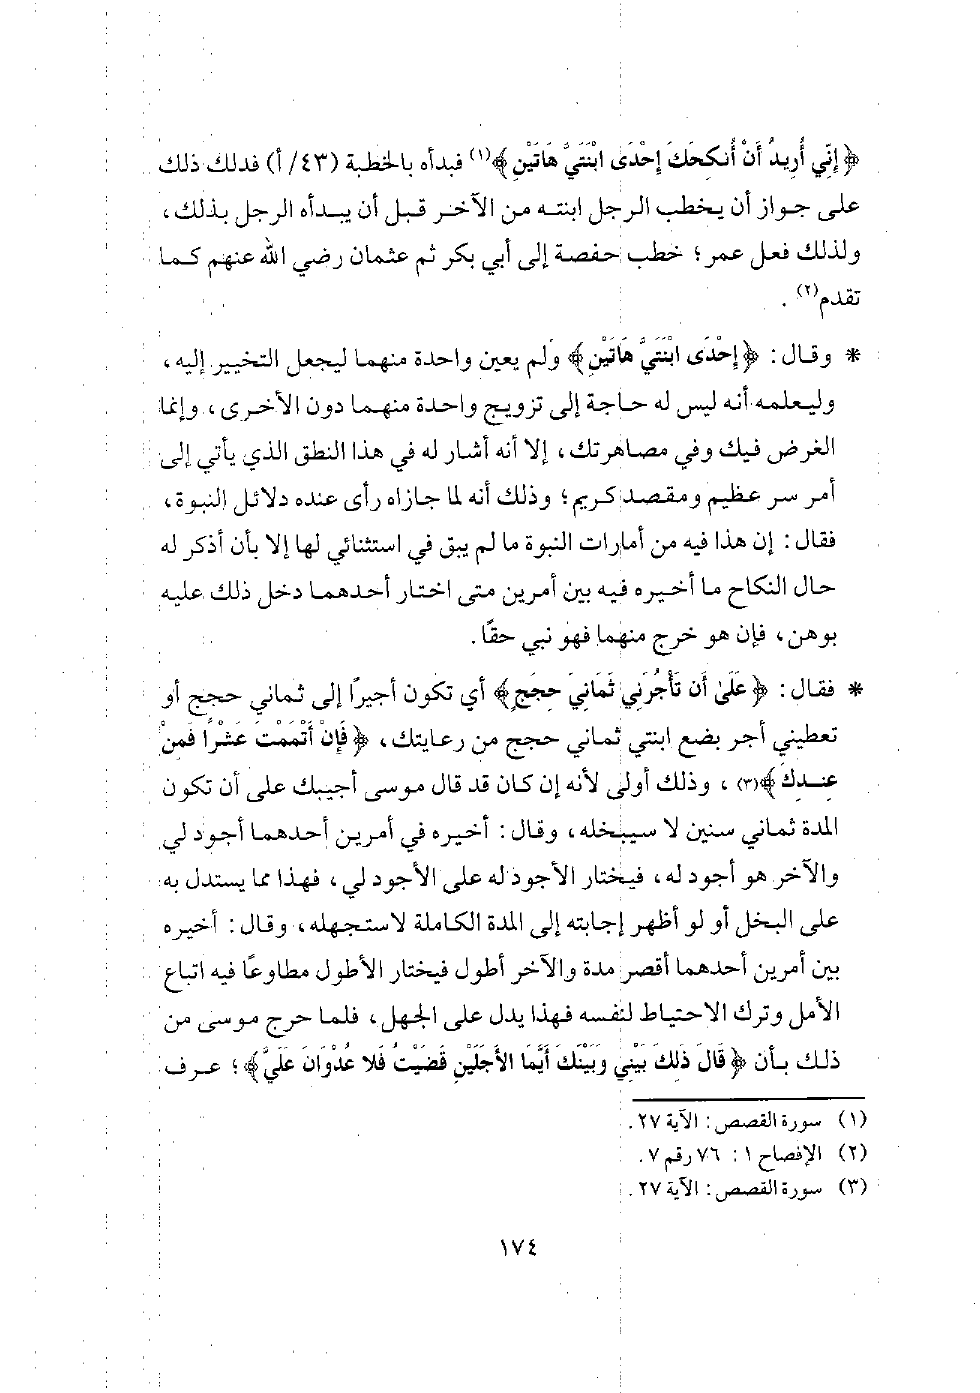 ﴿إِنِّي أُرِيدُ أَنْ أُنكِحَكَ إِحْدَى ابْنَتَيَّ هَاتَيْنِ﴾(١) فبدأه بالخطبة (٤٣/ أ) فدلك ذلك
على جواز أن يخطب الرجل ابنته من الآخر قبل أن يبدأه الرجل بذلك،
ولذلك فعل عمر؛ خطب حفصة إلى أبي بكر ثم عثمان رضي الله عنهم كما
تقدم(٢) .
* وقال: ﴿إِحْدَى ابْنَتَيَّ هَاتَيْنِ﴾ ولم يعين واحدة منهما ليجعل التخيير إليه،
وليعلمه أنه ليس له حاجة إلى تزويج واحدة منهما دون الأخرى، وإنما
الغرض فيك وفي مصاهرتك، إلا أنه أشار له في هذا النطق الذي يأتي إلى
أمر سر عظيم ومقصد كريم؛ وذلك أنه لما جازاه رأى عنده دلائل النبوة،
فقال: إن هذا فيه من أمارات النبوة ما لم يبق في استثنائي لها إلا بأن أذكر له
حال النكاح ما أخيره فيه بين أمرين متى اختار أحدهما دخل ذلك عليه
بوهن، فإن هو خرج منهما فهو نبي حقًا.
* فقال: ﴿عَلَىٰ أَن تَأْجُرَنِي ثَمَانِيَ حِجَجٍ﴾ أي تكون أجيرًا إلى ثماني حجج أو
تعطيني أجر بضع ابنتي ثماني حجج من رعايتك، ﴿فَإِنْ أَتْمَمْتَ عَشْرًا فَمِنْ
عِندِكَ﴾(٣)، وذلك أولى لأنه إن كان قد قال موسى أجيبك على أن تكون
المدة ثماني سنين لا سيبخله، وقال: أخيره في أمرين أحدهما أجود لي
والآخر هو أجود له، فيختار الأجود له على الأجود لي، فهذا مما يستدل به
على البخل أو لو أظهر إجابته إلى المدة الكاملة لاستجهله، وقال: أخيره
بين أمرين أحدهما أقصر مدة والآخر أطول فيختار الأطول مطاوعًا فيه اتباع
الأمل وترك الاحتياط لنفسه فهذا يدل على الجهل، فلما حرج موسى من
ذلك بأن ﴿قَالَ ذَلِكَ بَيْنِي وَبَيْنَكَ أَيَّمَا الأَجَلَيْنِ قَضَيْتُ فَلا عُدْوَانَ عَلَيَّ﴾؛ عرف
(١) سورة القصص: الآية ٢٧.
(٢) الإفصاح ١ : ٧٦ رقم ٧.
(٣) سورة القصص: الآية ٢٧.
١٧٤